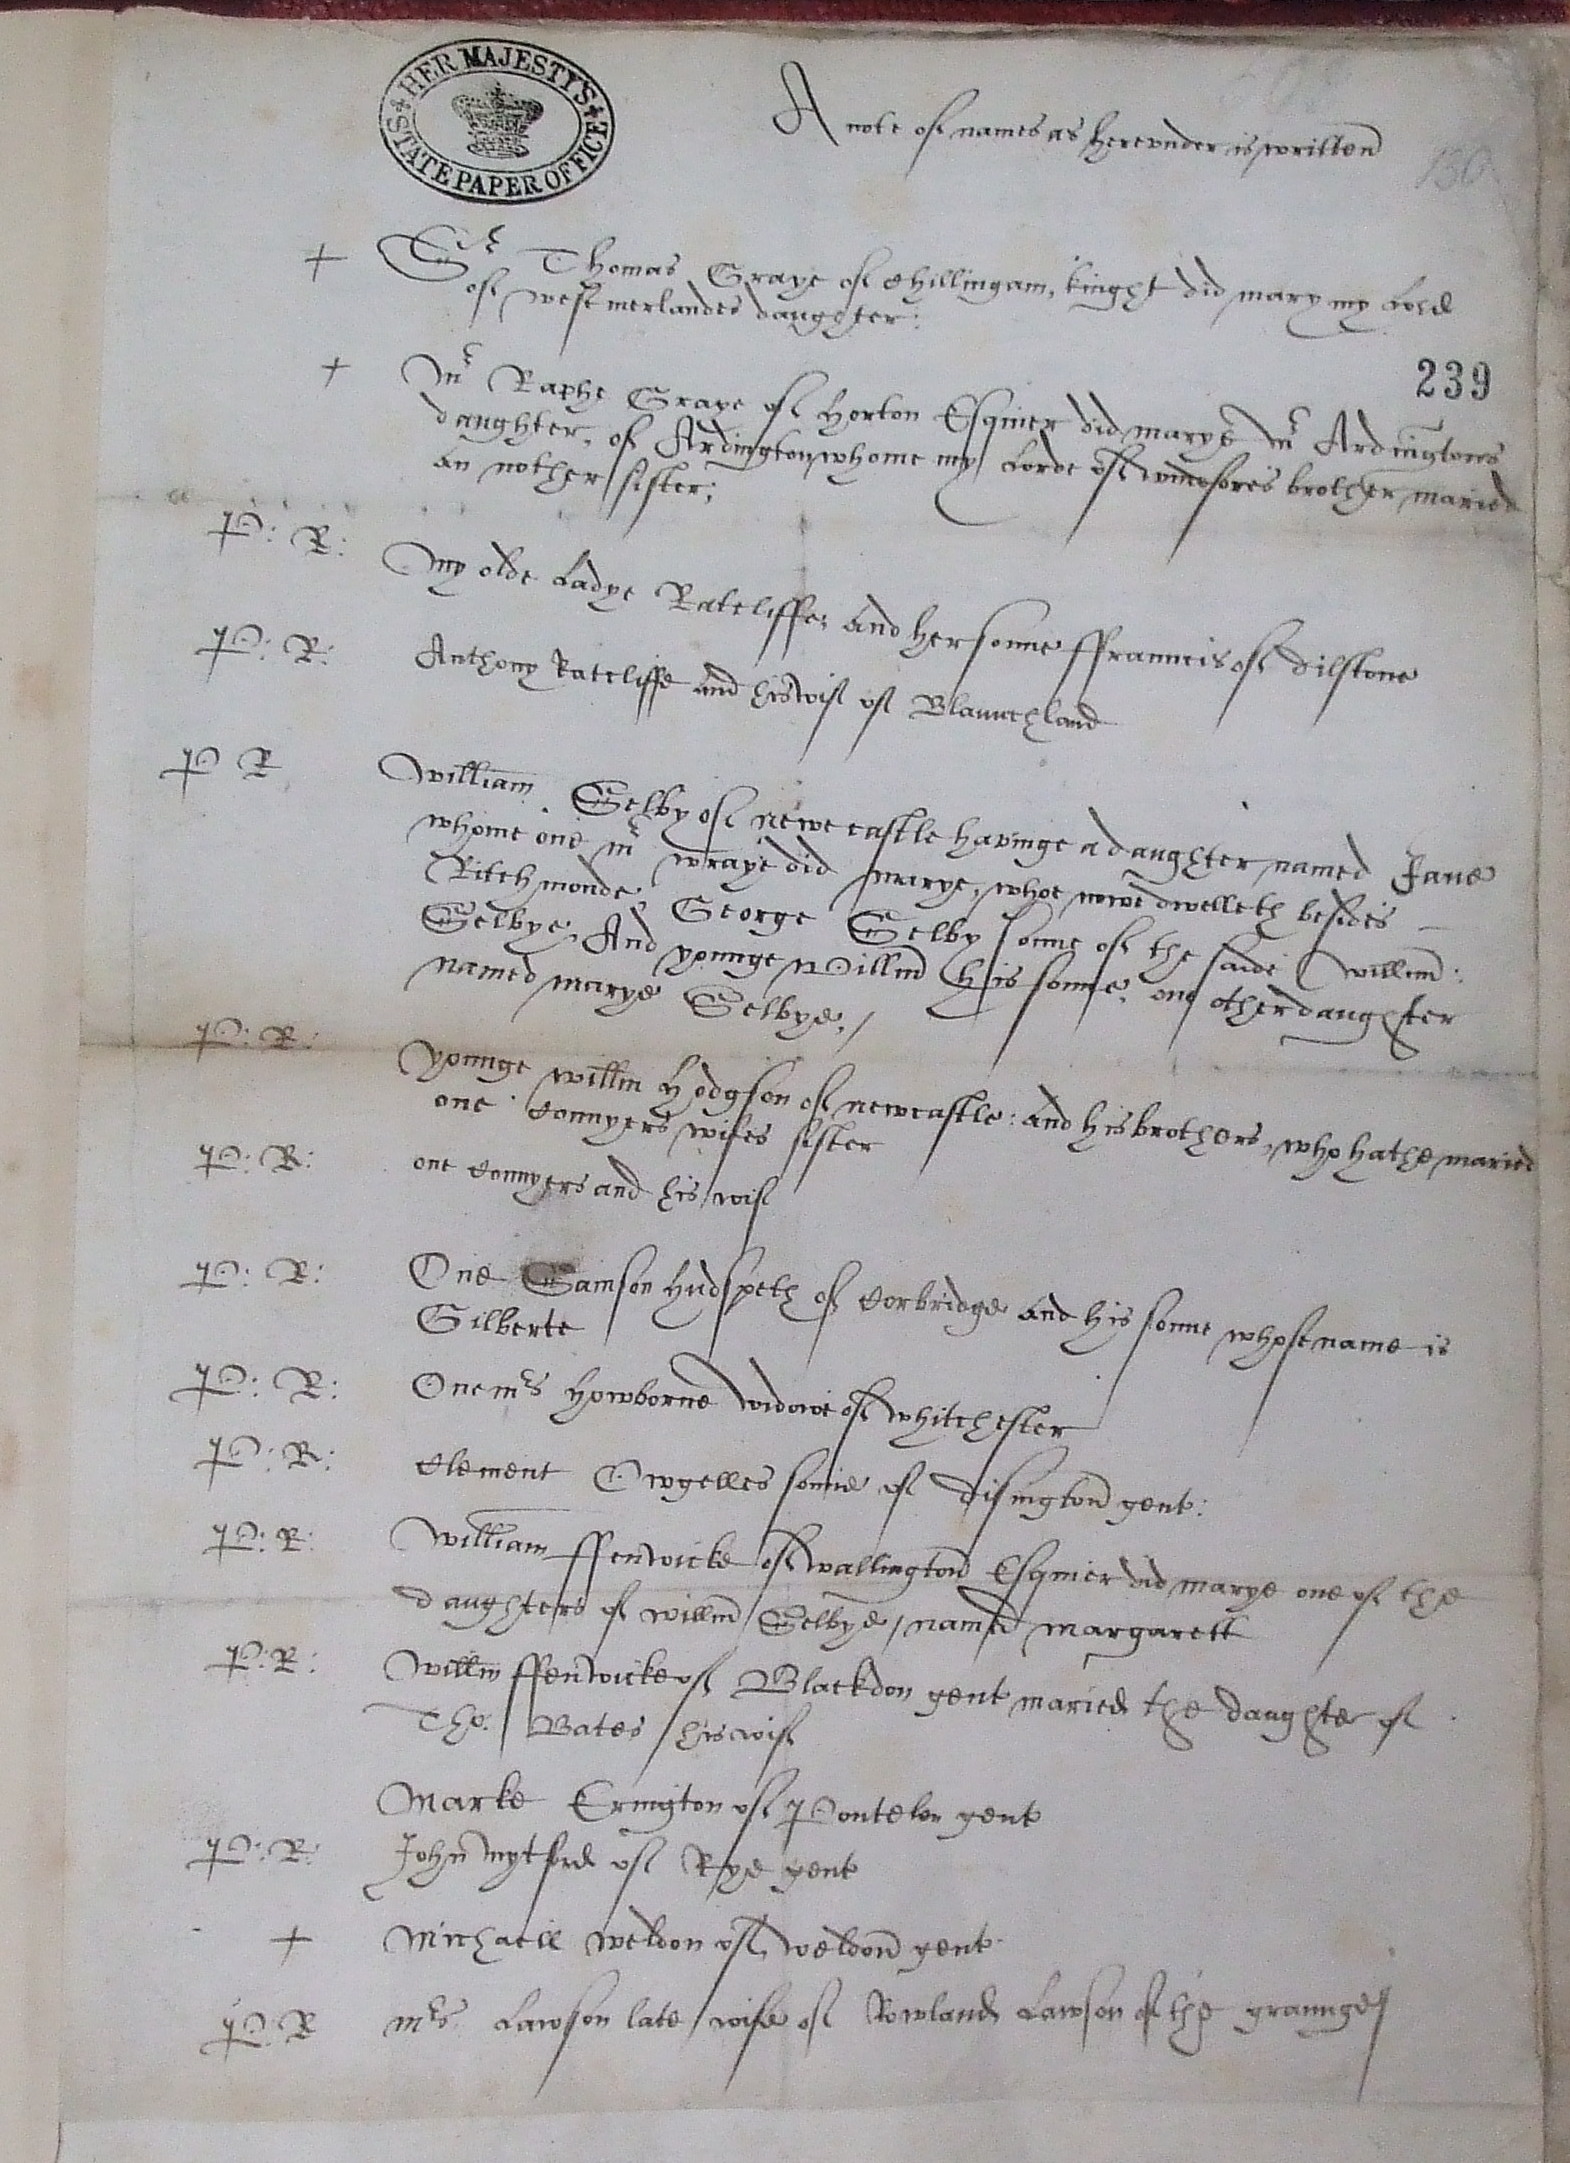 HER MAJESTY'S
STATE PAPER OFFICE
A note of names as herevnder is written
130
+ Sr Thomas Graye of Chillingam, kinght did mary my Lord
of westmerlandes daughter:
239
+ Mr Raphe Graye of Horton Esquier did marye Mr Ardingtons
daughter, of Ardington, whome my Lorde of windsores brother maried
an nother sister;
P: R: My olde Ladye Ratcliffe, And her sonne ffrauncis of dilstone
P: R: Anthony Ratcliffe and his wif of Blaunchland
P R William Selby of newe castle havinge a daughter named Jane
whome one Mr wraye did marye, whoe nowe dwelleth besides
Ritchmonde, George Selby sonne of the saide Willm:
Selbye, And younge Willm his sonne, one other daughter
named marye Selbye./
P: R: younge willm Hodgson of newcastle: and his brothers, who hathe maried
one Connyers wifes sister
P: R: one Connyers and his wif
P: R: One Samson Hudspeth of Corbridge and his sonne whose name is
Gilberte
P: R: One mrs Howborne widowe of whitchester
P: R: Clement Owgelles sonne of disington gent:
P: R: William ffenwicke of wallington Esquier did marye one of the
daughters of willm Selbye, named margarett
P: R: Willm ffenwicke of Blackdon gent maried the daughter of
Tho: Bates his wif
Marke Erington of Pontelon gent
P: R: John mytford of Rye gent
+ Michaell weldon of weldon gent
P: R mrs Lawson late wife of Rowland Lawson of the graunge